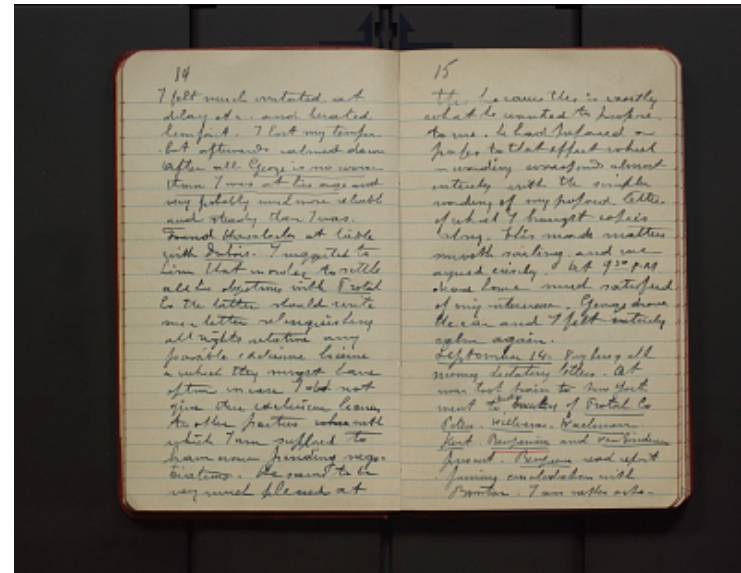 14
I felt much irritated at
delay etc. and berated
him for it. I lost my temper
but afterwards calmed down
After all George is no worse
than I was at his age and
very probably much more reliable
and steady than I was.
Found at table
with Dubois. I suggested to
him that in order to settle
all his objections with Protal
Co the latter should write
me a letter relinquishing
all rights relative any
possible exclusive license
which they might have
often in case I did not
give the exclusive license
to other parties with
which I am supposed to
have now pending nego-
tiations. He seemed to be
very much pleased at
15
this because this is exactly
what he wanted to propose
to me. he had prepared a
paper to that effect which
wording corresponds almost
entirely with the simpler
wording of my proposed letter
of which I brought copies
along. This made matters
smooth sailing and we
agreed easily. At 9:30 P.M.
home much satisfied
of my interview. George drove
the car and I felt entirely
calm again.
September 14. busy all
morning dictating letters. At
noon took train to New York
went to meeting of Protal Co
Peter. Williams.
Kent. Benjamin and
present. Benjamin read report
consolidation with
I am rather